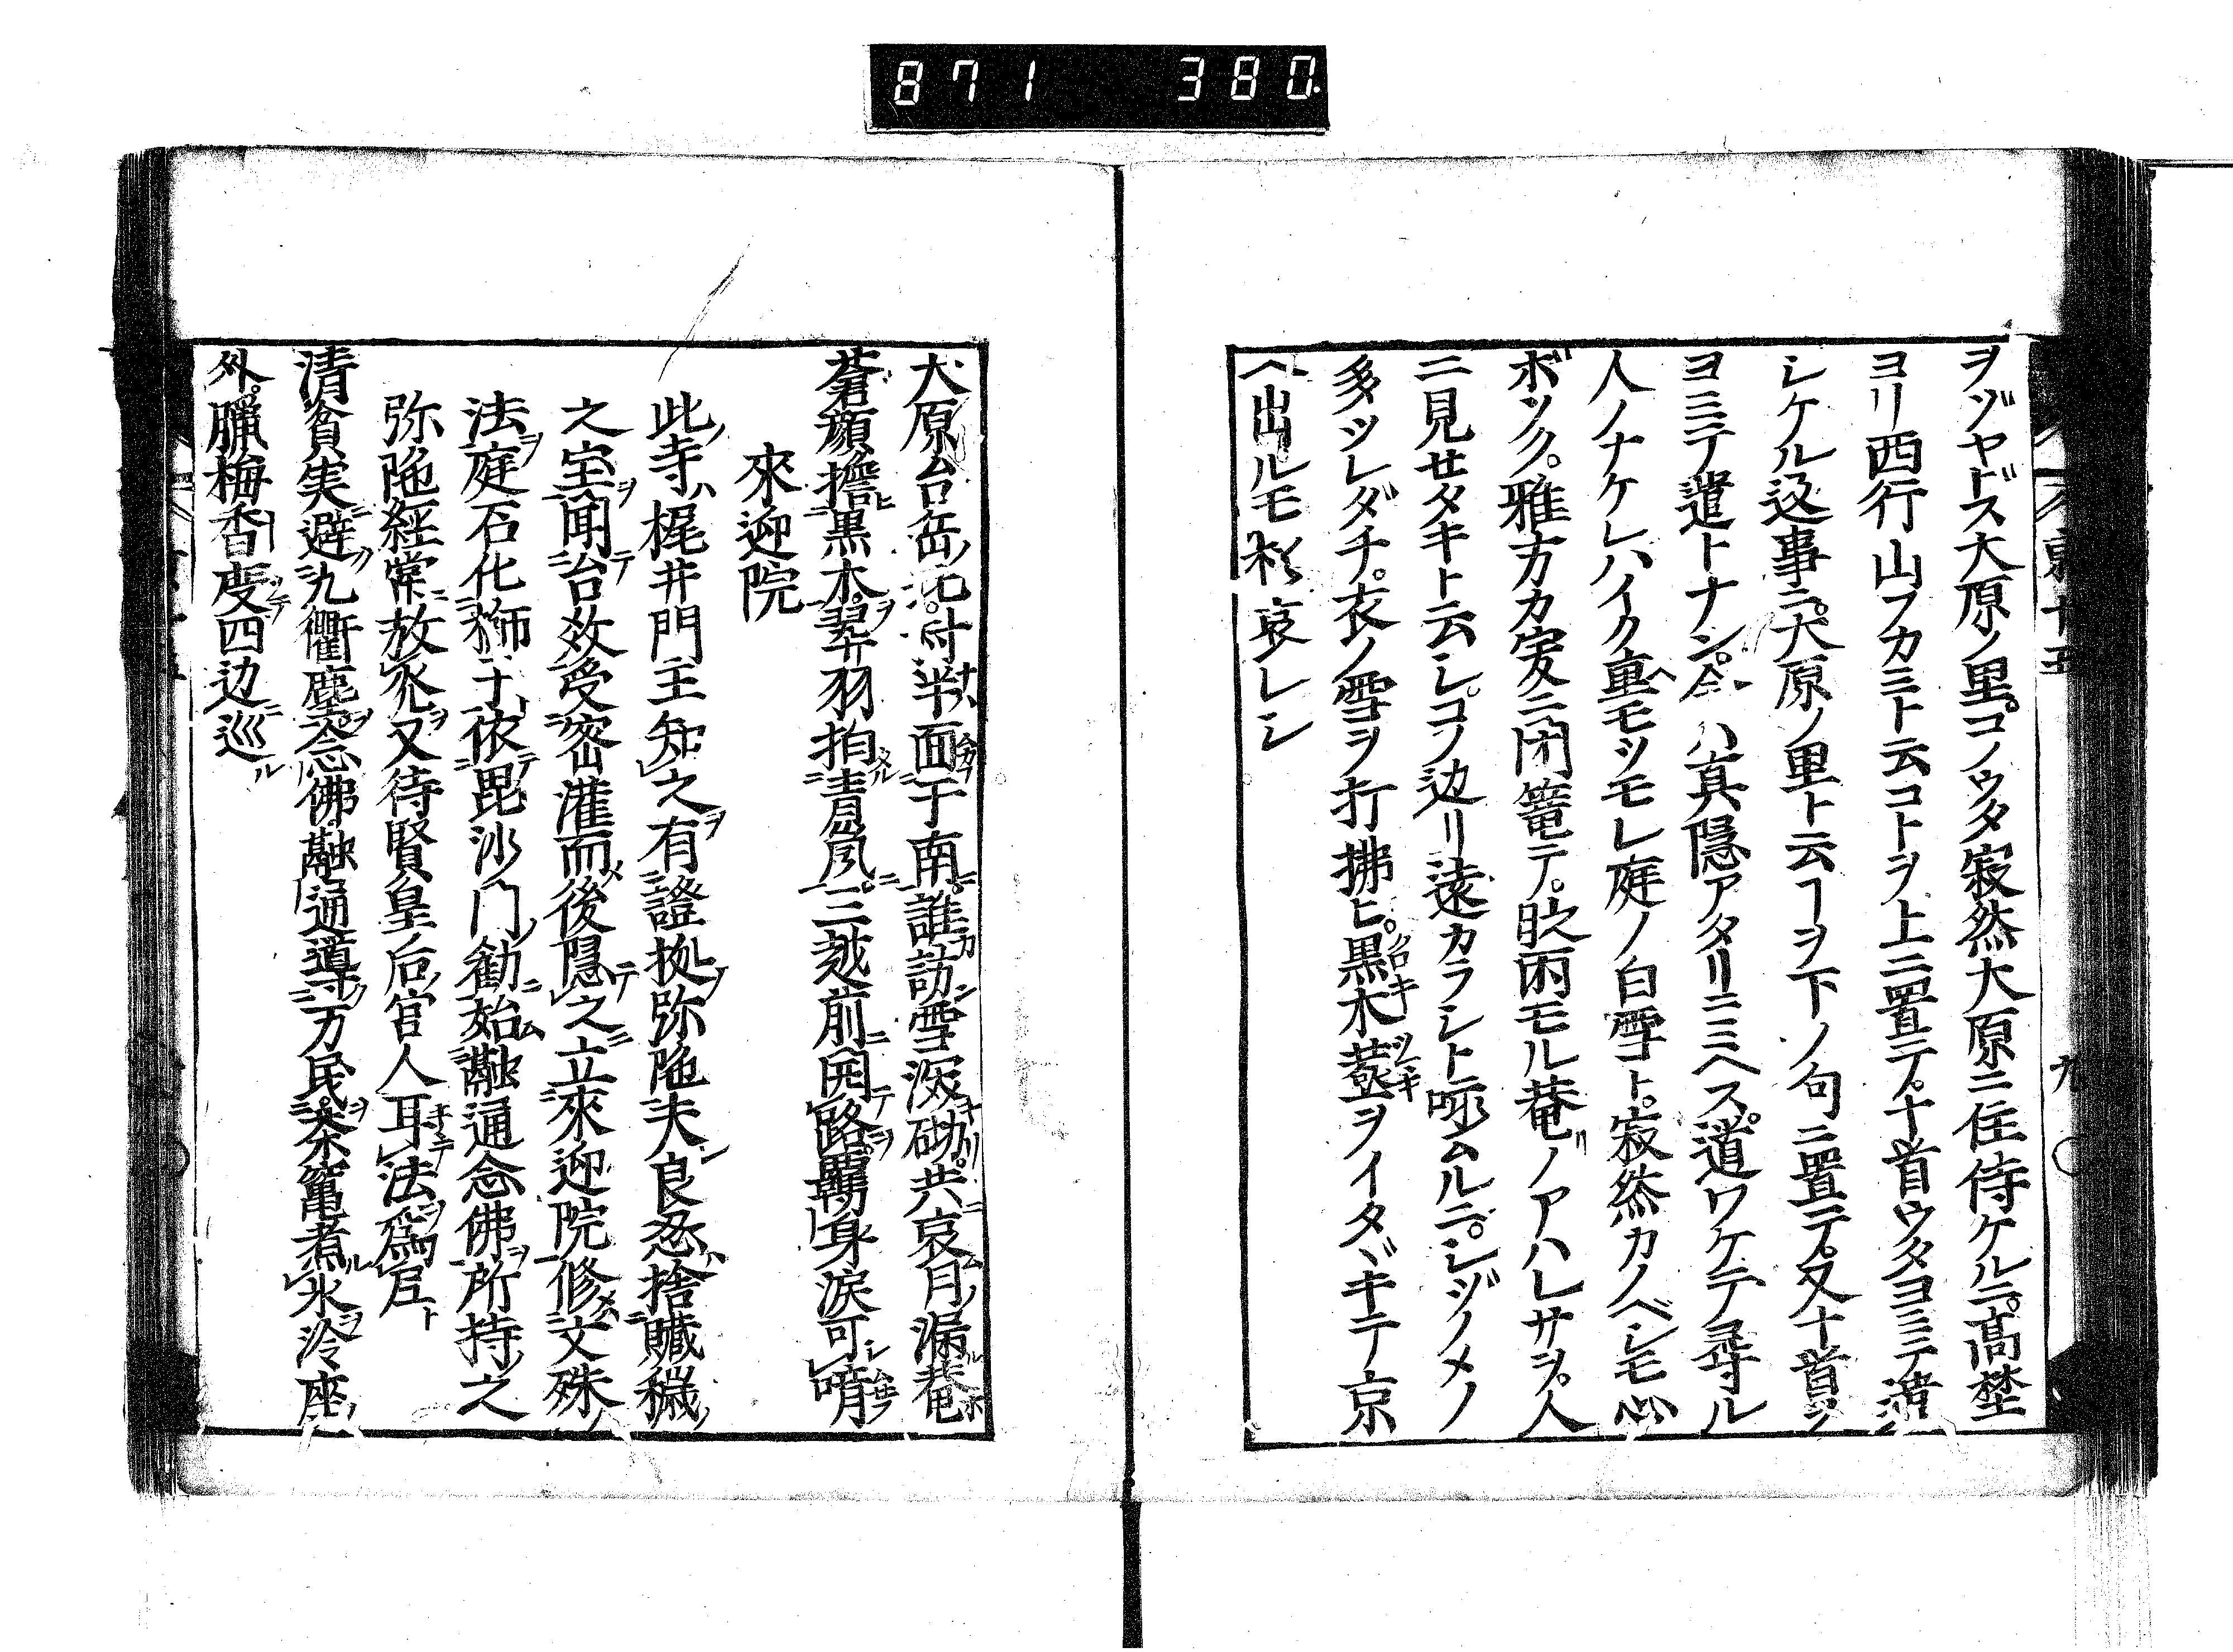 871 380
ヲゾヤドス大原ノ里。コノウタ寂然大原ニ住侍ケルニ。高埜
ヨリ西行山フカミト云コトヲ上ニ置テ。十首ウタヨミテ遣
シケル返事ニ。大原ノ里ト云ヿヲ下ノ句ニ置テ。又十首ノ
ヨミテ遣トナン。今ハ真隠アタリニミヘス。道ワケテ尋ル
人ノナケレハイク重モツモレ庭ノ白雪ト。寂然カノベシモ心
ボソク。雅方カ実ニ閉篭テ。吹雨モル菴ノアハレサヲ。人
ニ見セタキト云シ。コノ辺リ遠カラシト詠ムルニ。シヅノメノ
多ツレダチ。衣ノ雪ヲ打拂ヒ。黒木薹ヲイタヾキテ京
ヘ出ルモ哀レシ
大原台岳北。村半面于南。誰訪雪深砌。共哀月漏菴
蒼顔擔黒木。翠羽拍青嵐。三越前開路羈身涙可
來迎院
此寺ハ梶井門主知之有證拠弥陁夫良忍捨贓穢
之室聞台效受密灌而後隠之立來迎院修文殊
法庭石化獅子依毘沙门勧始融通念佛所持之
弥陁経常放光又待賢皇后官人耳法為尼
清貧実避九衢塵念佛融通導万民柰竃煮氷冷座
外。臘梅香度四辺巡
九